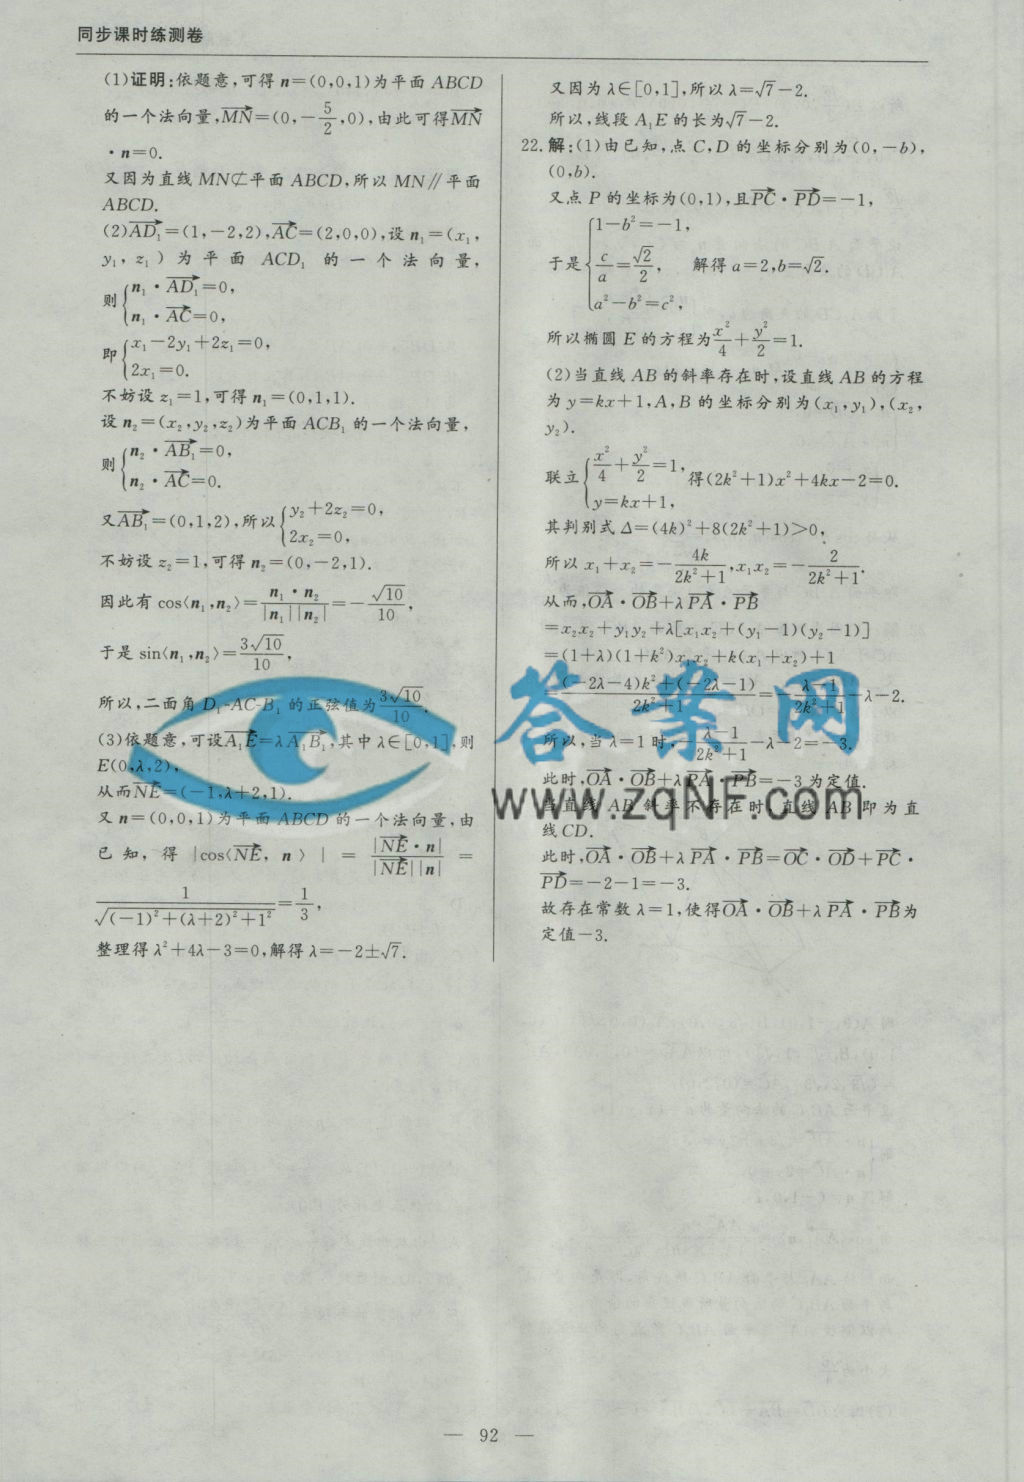 同步课时练测卷
(1)证明:依题意,可得 n=(0,0,1)为平面 ABCD
的一个法向量,MN=(0,-5/2,0),由此可得MN
·n=0.
又因为直线 MN⊄平面 ABCD,所以 MN∥平面
ABCD.
(2)AD₁=(1,-2,2),AC=(2,0,0),设 n₁=(x₁,
y₁,z₁)为平面 ACD₁ 的一个法向量,
则{n₁·AD₁=0,
n₁·AC=0,
即{x₁-2y₁+2z₁=0,
2x₁=0.
不妨设 z₁=1,可得 n₁=(0,1,1).
设 n₂=(x₂,y₂,z₂)为平面 ACB₁ 的一个法向量,
则{n₂·AB₁=0,
n₂·AC=0.
又AB₁=(0,1,2),所以{y₂+2z₂=0,
2x₂=0,
不妨设 z₂=1,可得 n₂=(0,-2,1).
因此有 cos⟨n₁,n₂⟩=n₁·n₂/|n₁||n₂|=-√10/10,
于是 sin⟨n₁,n₂⟩=3√10/10,
所以,二面角 D₁-AC-B₁ 的正弦值为3√10/10.
(3)依题意,可设A₁E=λA₁B₁,其中 λ∈[0,1],则
E(0,λ,2),
从而NE=(-1,λ+2,1).
又 n=(0,0,1)为平面 ABCD 的一个法向量,由
已知,得 |cos⟨NE,n⟩|=|NE·n|/|NE||n|=
1/√((-1)²+(λ+2)²+1²)=1/3,
整理得 λ²+4λ-3=0,解得 λ=-2±√7.
又因为 λ∈[0,1],所以 λ=√7-2.
所以,线段 A₁E 的长为√7-2.
22.解:(1)由已知,点 C,D 的坐标分别为(0,-b),
(0,b).
又点 P 的坐标为(0,1),且PC·PD=-1,
于是{1-b²=-1,
c/a=√2/2, 解得 a=2,b=√2.
a²-b²=c²,
所以椭圆 E 的方程为x²/4+y²/2=1.
(2)当直线 AB 的斜率存在时,设直线 AB 的方程
为 y=kx+1,A,B 的坐标分别为(x₁,y₁),(x₂,
y₂).
联立{x²/4+y²/2=1,
y=kx+1, 得(2k²+1)x²+4kx-2=0.
其判别式 Δ=(4k)²+8(2k²+1)>0,
所以 x₁+x₂=-4k/(2k²+1),x₁x₂=-2/(2k²+1).
从而,OA·OB+λPA·PB
=x₂x₂+y₁y₂+λ[x₁x₂+(y₁-1)(y₂-1)]
=(1+λ)(1+k²)x₁x₂+k(x₁+x₂)+1
=((-2λ-4)k²+(-2λ-1))/(2k²+1)=-(λ-1)/(2k²+1)-λ-2.
所以,当 λ=1 时,-(λ-1)/(2k²+1)-λ-2=-3.
此时,OA·OB+λPA·PB=-3 为定值.
当直线 AB 斜率不存在时,直线 AB 即为直
线CD.
此时,OA·OB+λPA·PB=OC·OD+PC·
PD=-2-1=-3.
故存在常数 λ=1,使得OA·OB+λPA·PB为
定值-3.
答案网
www.zqNF.com
— 92 —